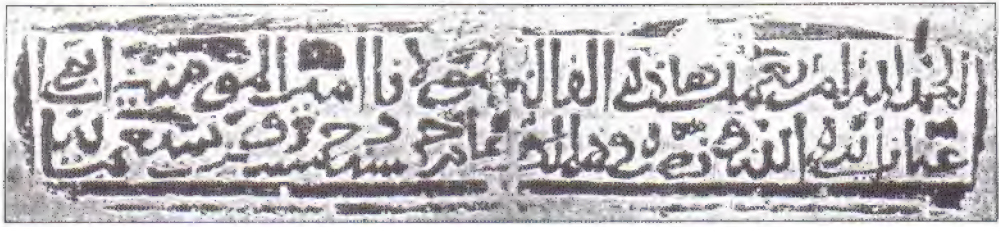 الحمد لله امر بعمل هاذه القالة مولانا امير المومنين ابي
عنان ايده الله ونصره عام خمسة وخمسين وسبعماية